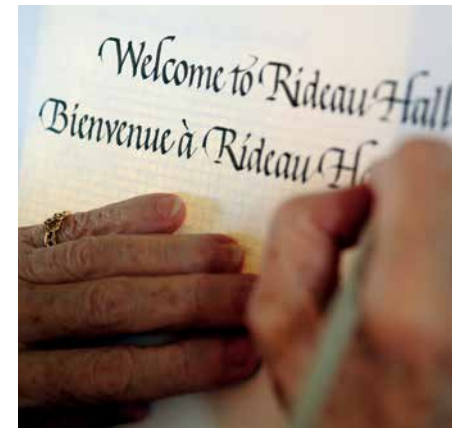 Welcome to Rideau Hall
Bienvenue à Rideau